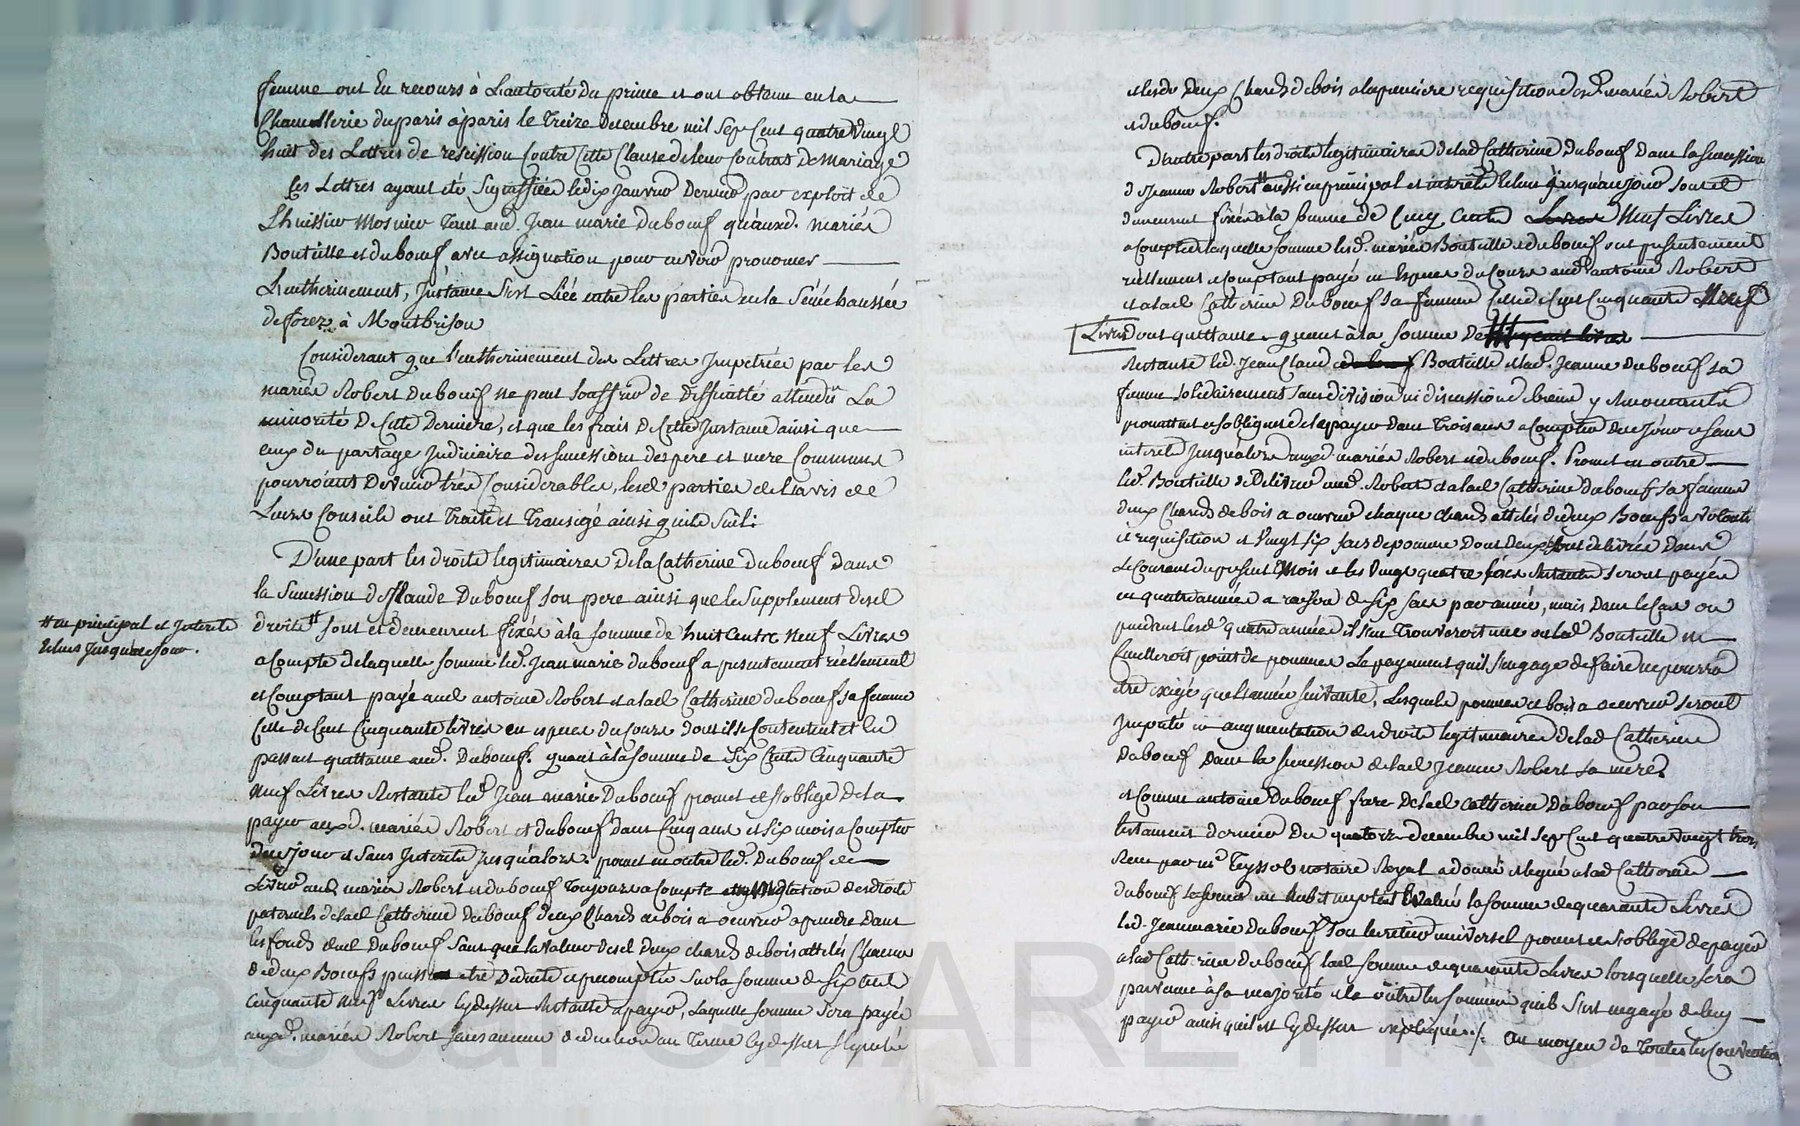 femme ont Eu recours à L'autorité du prince et ont obtenu en la
Chancellerie du paris à paris le Treize Decembre mil sept Cent quatre vingt
huit des Lettres de rescission Contre Cette Clause de leur Contrat de Mariage
Ces Lettres ayant été Signiffiées le dix Janvier Dernier par exploit de
L'huissier Mosnier Tant aud. Jean marie duboeuf qu'auxd. mariés
Boutuille et duboeuf avec assignation pour en voir prononcer
L'entherinement, Jnstance S'est Liée entre les parties en la Sénéchaussée
de forez à Montbrison
Considerant que l'entherinement des Lettres Jmpetrées par les
mariés Robert Duboeuf ne peut Souffrir de Difficulté attendu La
minorité de Cette Derniere, et que les frais de Cette Jnstance ainsi que
ceux du partage Judiciaire des Successions des pere et mere Communs
pourroient Devenir trés Considerables, lesd parties de L'avis de
Leurs Conseils ont Traité et Transigé ainsi qu'il Suit:
D'une part les droits legitimaires de la Catherine duboeuf dans
la Succession de Claude Duboeuf Son pere ainsi que le Supplement desd
droits # Sont et demeurent fixés à la Somme de huit Cents Neuf Livres
# en principal et Jnterets
Echus Jusqu'à ce jour.
a Compte de laquelle Somme led. Jean marie duboeuf a presentement réellement
et Comptant payé aud antoine Robert et a lad Catherine duboeuf Sa femme
Celle de Cent Cinquante livres en especes du Cours dont ils Se Contentent et en
passent quittance aud. Duboeuf. quant à la Somme de Six Cents Cinquante
Neuf Livres Restante led. Jean marie Duboeuf promet et S'oblige de la
payer auxd. mariés Robert et duboeuf dans Cinq ans et Six mois a Compter
de ce jour et Sans Jnterets Jusqu'alors. promet en outre led. Duboeuf de
Livrer auxd mariés Robert et duboeuf Toujours a Compte des droits
paternels de lad Catherine duboeuf deux Chards de bois a oeuvrer a prendre dans
les fonds dud Duboeuf Sans que la valeur desd deux chards de bois attelés Chacun
de deux Boeufs puisse etre Déduite et precomptée Sur la Somme de Six Cent
Cinquante Neuf Livres Cydessus Restante a payer, Laquelle Somme Sera payée
auxd. mariés Robert Sans aucune deduction au Terme Cydessus Stipulé
et lesd deux Chards de bois a la premiere requisition desd. mariés Robert
et duboeuf.
D'autre part les droits legitimaires de lad Catherine Duboeuf dans la Succession
de Jeanne Robert aussi en principal et interets Echus jusqu'à ce jour Sont et
demeurent fixés à la Somme de Cinq Cents Livres Neuf Livres
a Compte de laquelle Somme lesd. mariés Boutuille et duboeuf ont presentement
réellement et Comptant payé en Especes du Cours aud. antoine Robert
et a lad Catherine Duboeuf Sa femme Celle de Cent Cinquante Neuf
Livres dont quittance. quant à la Somme de
Restante led. Jean Claude Boutuille et lad. Jeanne duboeuf Sa
femme Solidairement Sans division ni discussion de biens y Renonçants
promettent et s'obligent de la payer dans Trois ans a Compter de ce jour et Sans
interets Jusqu'alors auxd mariés Robert et duboeuf. Promet en outre
led. Boutuille de Délivrer aud. Robert et a lad Catherine duboeuf Sa femme
deux Chards de bois a oeuvrer chaque chard attelés de deux Boeufs a volonté
et requisition et Vingt Six Sacs de pommes dont deux Sont delivrés dans
Le Courant du present Mois et les Vingt quatre Restants Seront payés
en quatre années a raison de Six Sacs par année, mais dans le Cas où
pendant lesd quatre années il S'en Trouveroit une où led. Boutuille ne
Cueilleroit point de pommes Le payement qu'il S'engage de faire ne pourra
etre exigé que l'année Suivante, Lesquels pommes et bois a oeuvrer Seront
Jmputés en augmentation des droits legitimaires de lad Catherine
Duboeuf Dans la Succession de lad Jeanne Robert Sa mere.
et Comme antoine Duboeuf frere de lad Catherine Duboeuf par Son
testament dernier Du quatorze decembre mil Sept Cent quatre vingt trois
Reçu par me Teyssot notaire Royal a donné et legué a lad Catherine
duboeuf la Somme de quarante Livres
led. Jean marie Duboeuf Son heritier universel promet et S'oblige de payer
a lad Catherine duboeuf lad Somme de quarante Livres lorsqu'elle Sera
parvenue à Sa majorité et en outre les Sommes qu'il S'est engagé de luy
payer ainsi qu'il est Cydessus expliqué./. au moyen de Toutes les Conventions
Pascal CHAREYRON